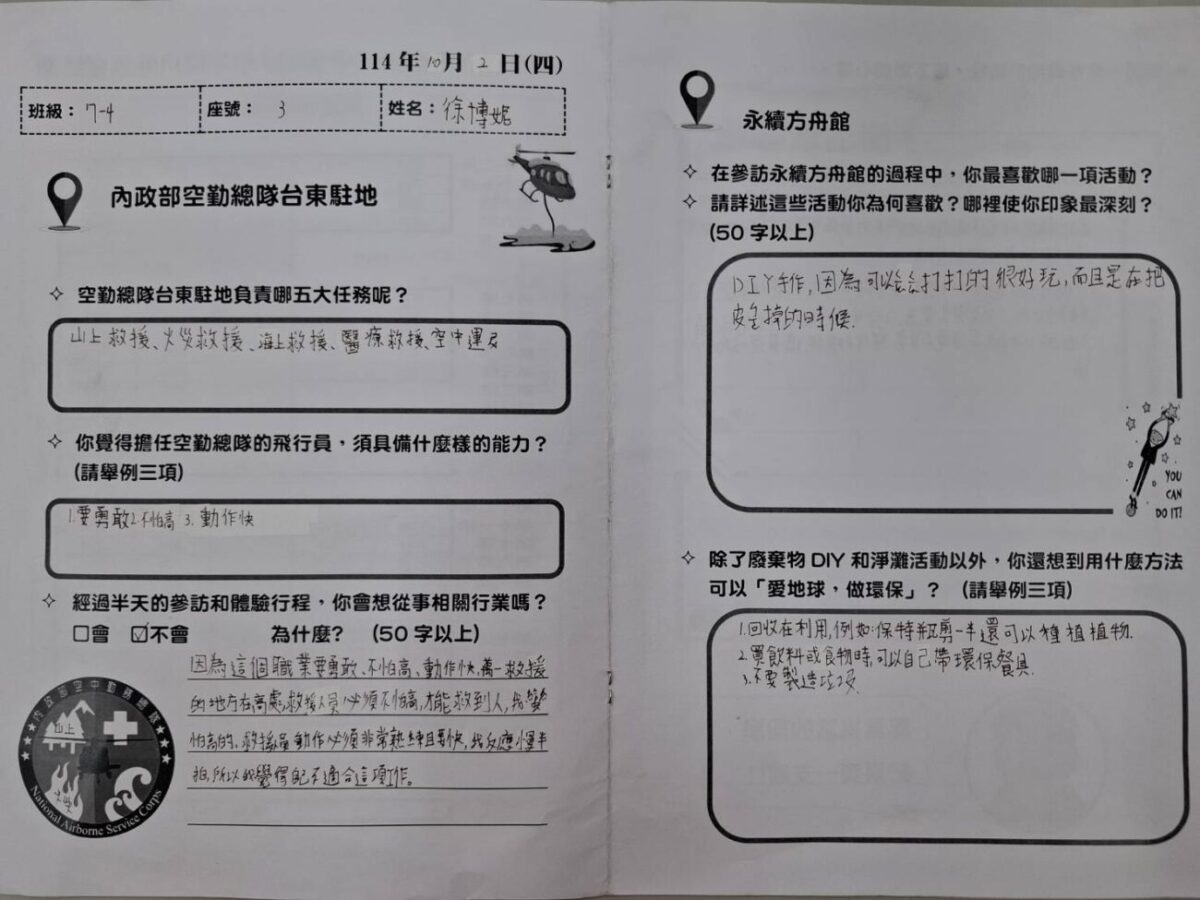 114年10月2日(四)
班級：7-4 座號：3 姓名：徐博妮
內政部空勤總隊台東駐地
空勤總隊台東駐地負責哪五大任務呢？
山上救援、火災救援、海上救援、醫療救援、空中運
你覺得擔任空勤總隊的飛行員，須具備什麼樣的能力？
(請舉例三項)
1.要勇敢2.不怕高 3.動作快
經過半天的參訪和體驗行程，你會想從事相關行業嗎？
□會 ☑不會 為什麼？ (50字以上)
因為這個職業要勇敢、不怕高、動作快,萬一救援
的地方在高處,救援人員必須不怕高,才能救到人,我蠻
怕高的,救援員動作必須非常熟練且要快,我反應慢半
拍,所以我覺得自己不適合這項工作。
內政部空中勤務總隊
山上
火災
National Airborne Service Corps
永續方舟館
在參訪永續方舟館的過程中，你最喜歡哪一項活動？
請詳述這些活動你為何喜歡？哪裡使你印象最深刻？
(50字以上)
DIY手作,因為可以敲敲打打的很好玩,而且是在把
敲掉的時候.
YOU
CAN
DO IT!
除了廢棄物DIY和淨灘活動以外，你還想到用什麼方法
可以「愛地球，做環保」？ (請舉例三項)
1.回收在利用,例如:保特瓶剪一半還可以種植植物.
2.買飲料或食物時,可以自己帶環保餐具.
3.不要製造垃圾.